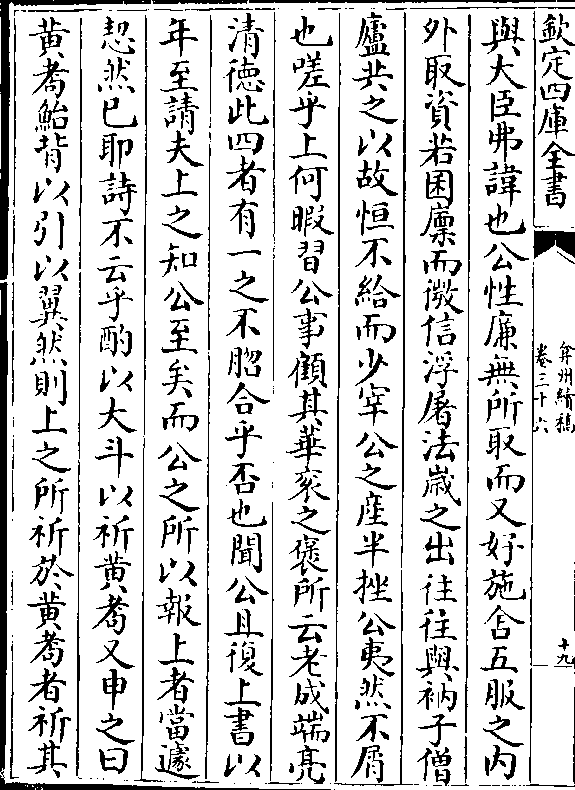 欽定四庫全書
弇州續稿
卷三十六
十九
與大臣弗諱也公性廉無所取而又好施舍五服之内
外取資若囷廩而微信浮屠法嵗之出往往與衲子僧
廬共之以故恒不給而少宰公之産半挫公夷然不屑
也嗟乎上何暇習公事顧其華衮之褒所云老成端亮
清徳此四者有一之不脗合乎否也聞公且復上書以
年至請夫上之知公至矣而公之所以報上者當遽
恝然已耶詩不云乎酌以大斗以祈黄耉又申之曰
黄耉鮐背以引以翼然則上之所祈於黄耉者祈其